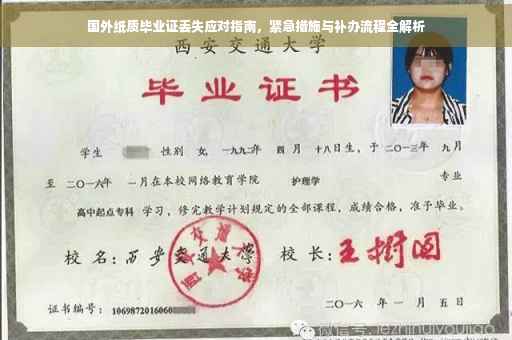 国外纸质毕业证丢失应对指南，紧急措施与补办流程全解析
西安交通大学
毕业证书
学生 性别 女，一九九二年 四月 十八日生，于二〇一三年 九月
至 二〇一六年 一月在本校网络教育学院 护理学 专业
高中起点专科 学习，修完教学计划规定的全部课程，成绩合格，准予毕业。
校 名：西安交通大学 校 长：王树国
西安交通大学
证书编号：1069872016060
二〇一六 年 一 月 五 日
微信号: jezhihuiyoujiao